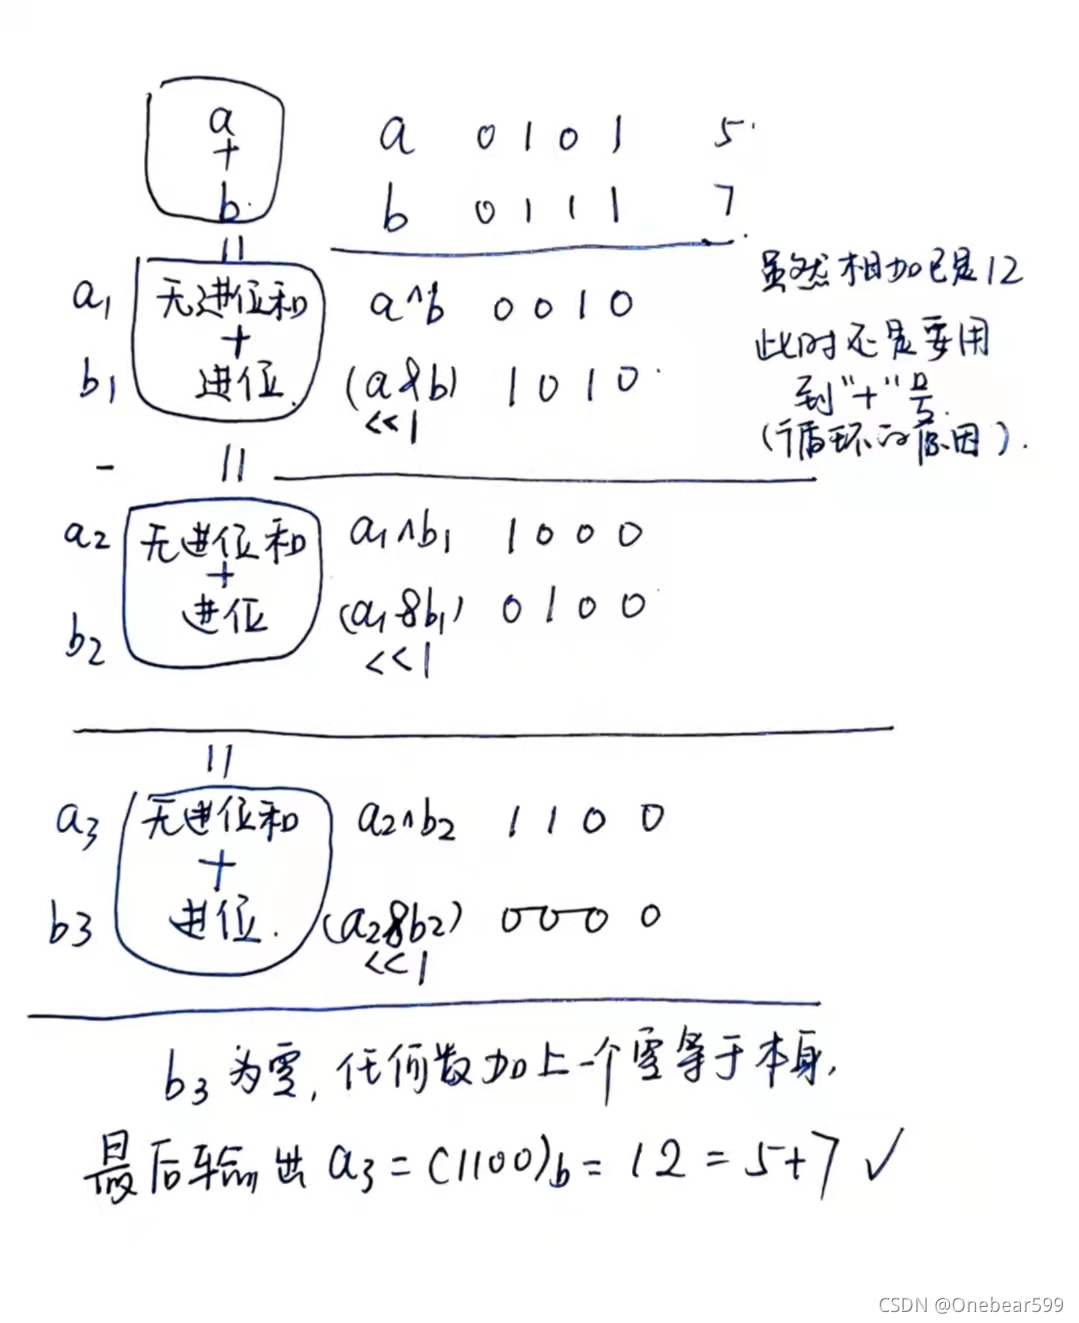 a
+
b
a 0 1 0 1 5
b 0 1 1 1 7
||
a1 无进位和 a^b 0 0 1 0
+
b1 进位 (a&b) 1 0 1 0
<<1
虽然相加已是12
此时还是要用
到"+"号
(循环的原因).
||
a2 无进位和 a1^b1 1 0 0 0
+
b2 进位 (a1&b1) 0 1 0 0
<<1
||
a3 无进位和 a2^b2 1 1 0 0
+
b3 进位. (a2&b2) 0 0 0 0
<<1
b3为零,任何数加上一个零等于本身.
最后输出a3=(1100)b=12=5+7✓
CSDN @Onebear599